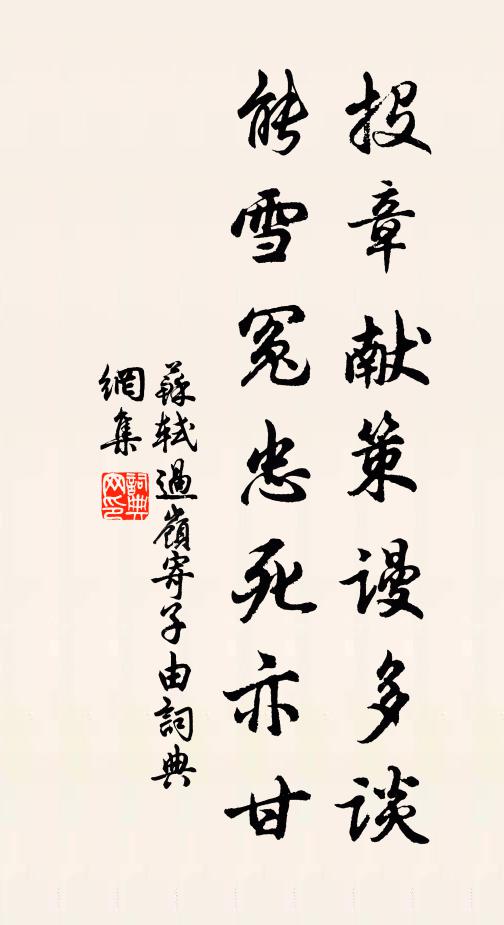 投章献策谩多谈
能雪冤忠死亦甘
蘇軾過嶺寄子由詞典
網集
詞典网印